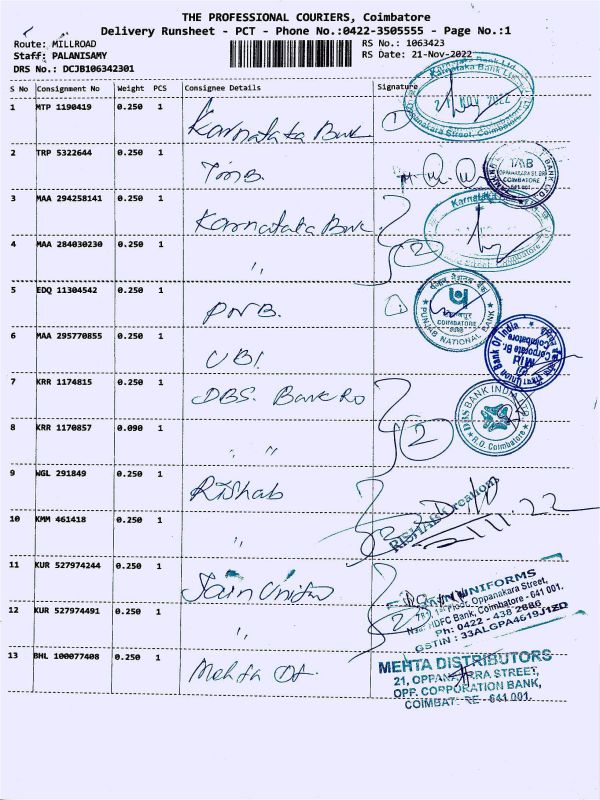 THE PROFESSIONAL COURIERS, Coimbatore
Delivery Runsheet - PCT - Phone No.:0422-3505555 - Page No.:1
Route: MILLROAD
RS No.: 1063423
Staff: PALANISAMY
RS Date: 21-Nov-2022
DRS No.: DCJB106342301
S No Consignment No Weight PCS Consignee Details Signature
1 MTP 1190419 0.250 1 Karnataka Bank ①
Karnataka Bank Ltd.
Oppanakara Street, Coimbatore
2 TRP 5322644 0.250 1 TMB.
TMB
OPPANAKARA ST. BR
COIMBATORE
641 001.
3 MAA 294258141 0.250 1 Karnataka Bank
4 MAA 284030230 0.250 1 〃 ②
5 EDQ 11304542 0.250 1 PNB. ①
COIMBATORE
PUNJAB NATIONAL BANK
6 MAA 295770855 0.250 1 UBI.
Union Bank Of India
Corporate Br.
Coimbatore
7 KRR 1174815 0.250 1 DBS. Bank RO
DBS BANK INDIA LTD
R.O. Coimbatore
8 KRR 1170857 0.090 1 〃 〃 2
9 WGL 291849 0.250 1 Rishab
RISHAB Creations
21.11.22
10 KMM 461418 0.250 1 〃 2
11 KUR 527974244 0.250 1 Jain Uniform
UNIFORMS
1st Floor, Oppanakara Street,
HDFC Bank, Coimbatore - 641 001.
Ph: 0422 - 438 2686
GSTIN : 33ALGPA4619J1ZD
12 KUR 527974491 0.250 1 〃 2
13 BHL 100077408 0.250 1 Mehta Dt.
MEHTA DISTRIBUTORS
21, OPPANAKARRA STREET,
OPP. CORPORATION BANK,
COIMBATORE - 641 001.